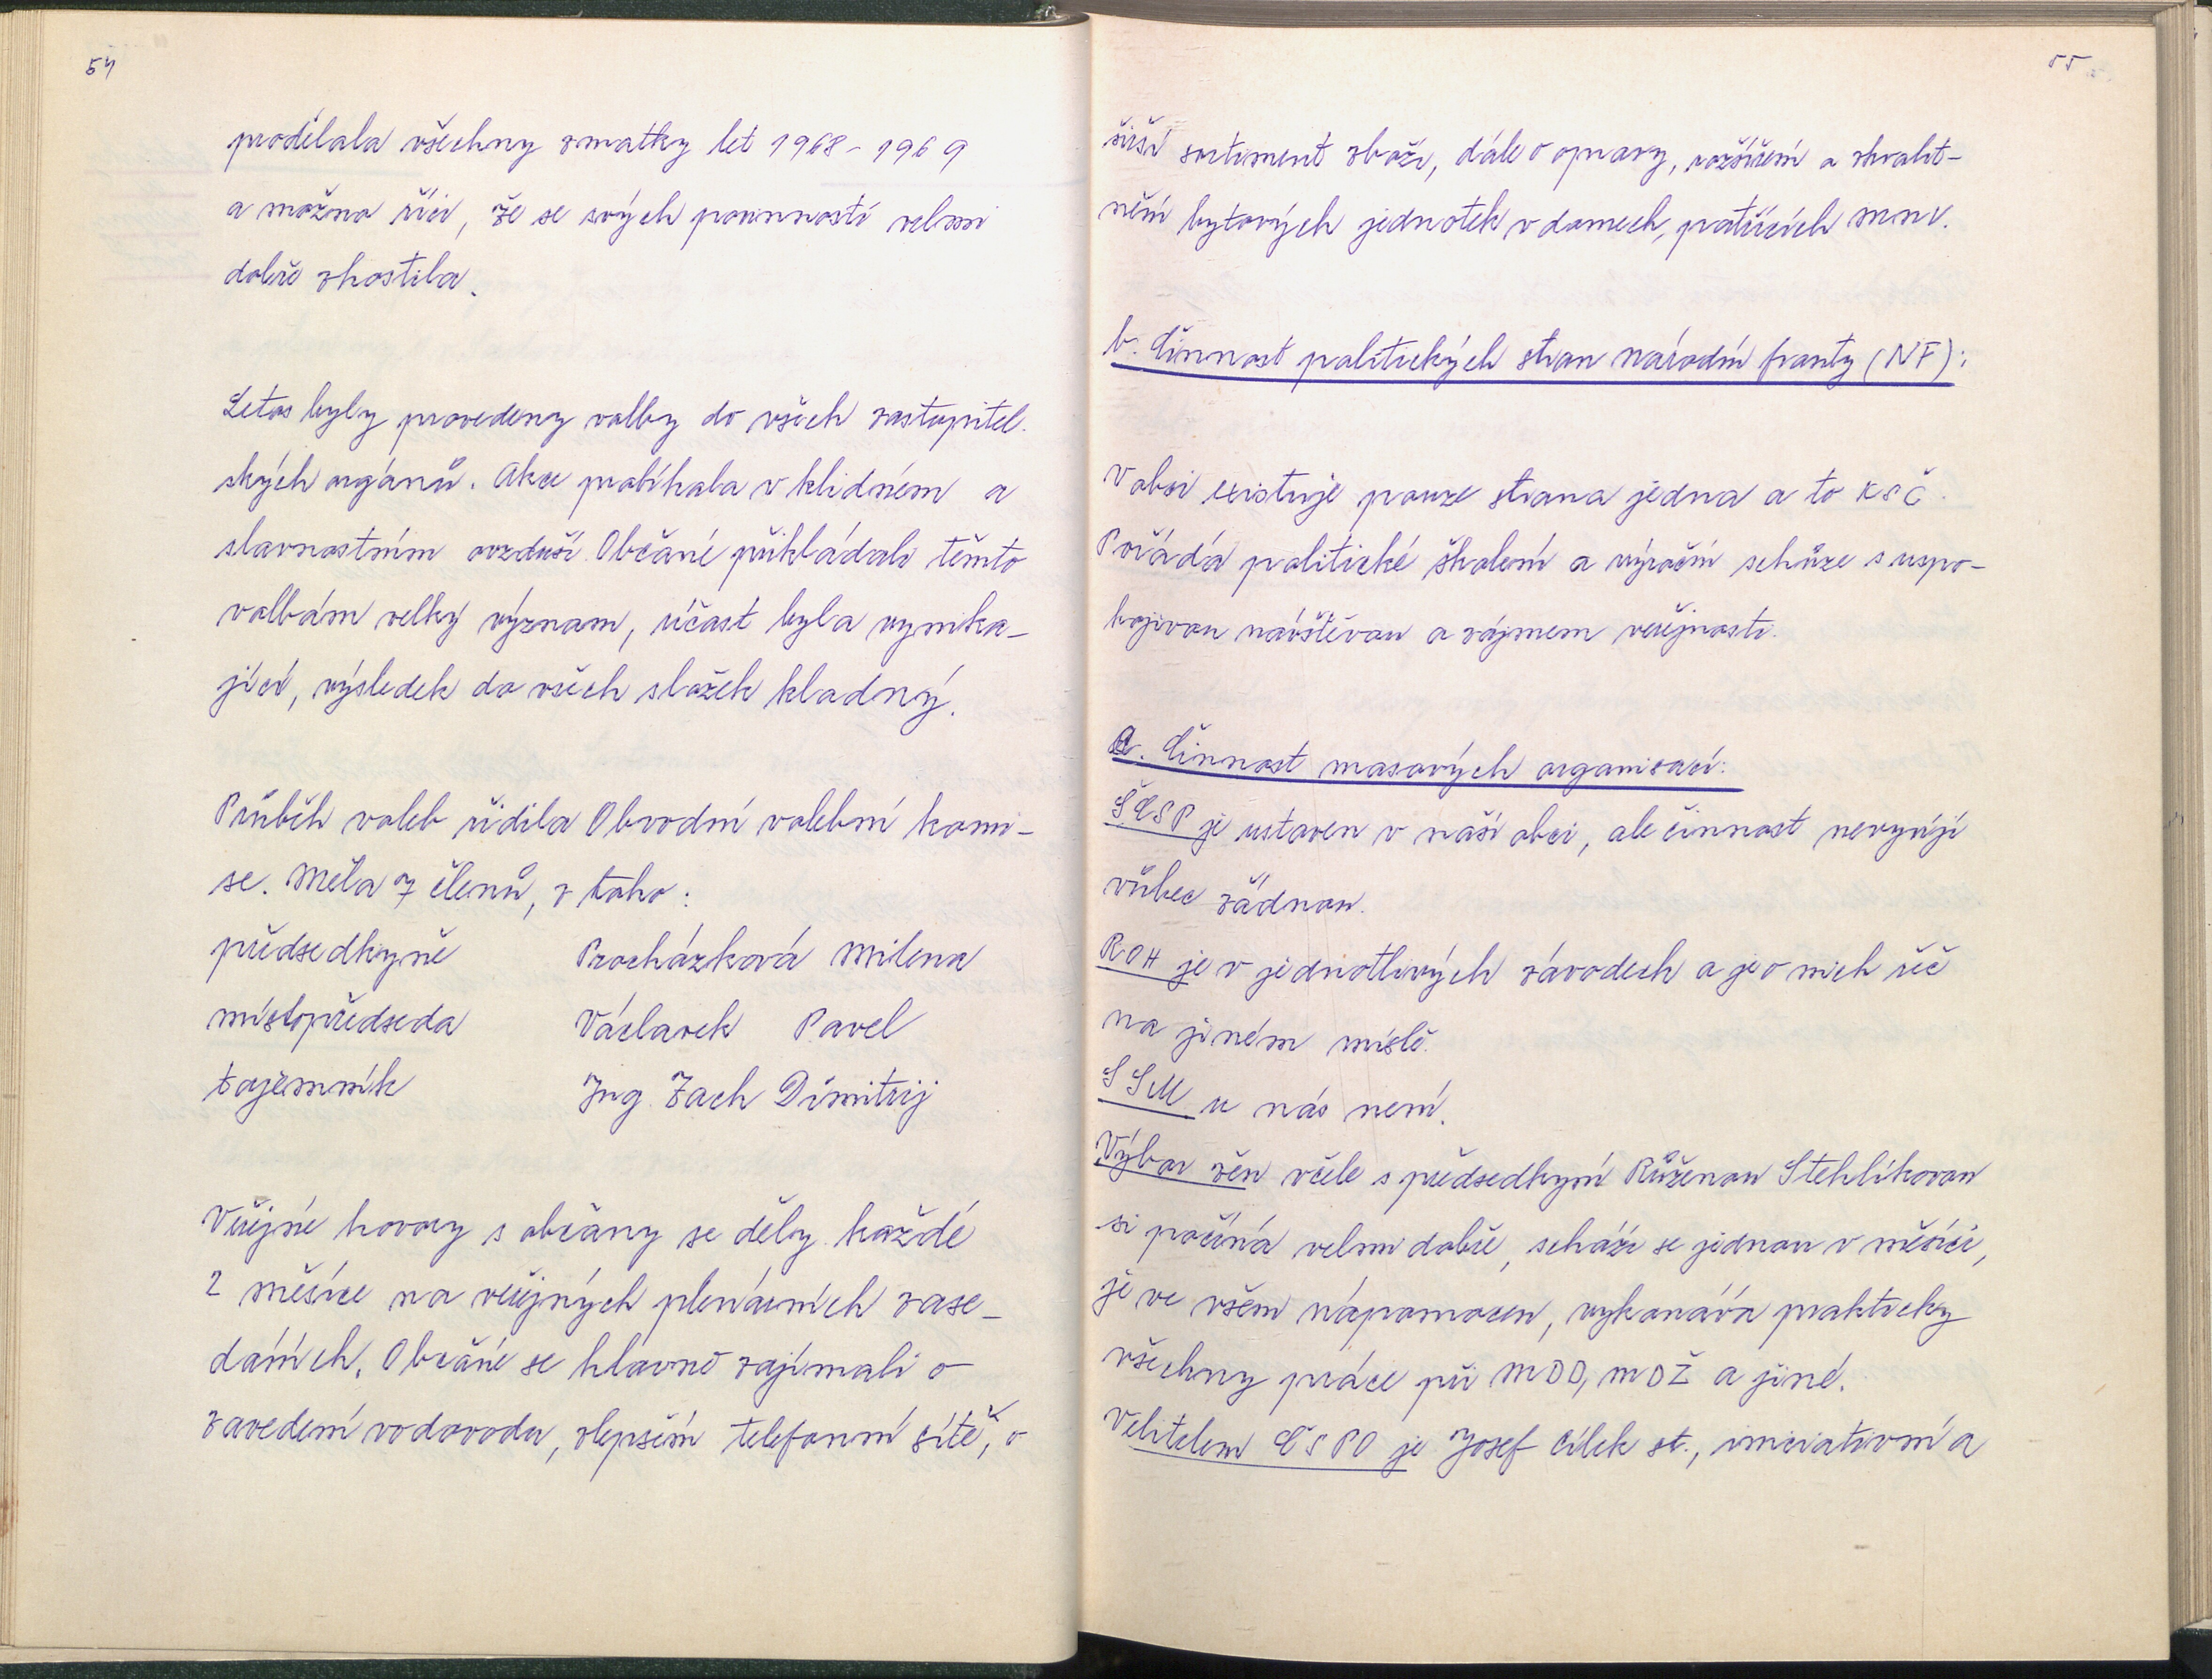 54
prodělala všechny zmatky let 1968 - 1969
a možno říci, že se svých povinností velmi
dobře zhostila.
Letos byly provedeny volby do všech zastupitel-
ských orgánů. Akce probíhala v klidném a
slavnostním ovzduší. Občané přikládali těmto
volbám velký význam, účast byla vynika-
jící, výsledek do všech složek kladný.
Průběh voleb řídila Obvodní volební komi-
se. Měla 7 členů, z toho:
předsedkyně Procházková Milena
místopředseda Václavek Pavel
tajemník Ing. Zach Dimitrij
Veřejné hovory s občany se děly každé
2 měsíce na veřejných plenárních zase-
dáních. Občané se hlavně zajímali o
zavedení vodovodu, zlepšení telefonní sítě, o
55
širší sortiment zboží, dále o opravy, rozšíření a zkvalit-
nění bytových jednotek v domech, patřících MNV.
b. Činnost politických stran národní fronty (NF):
V obci existuje pouze strana jedna a to KSČ.
Pořádá politické školení a výroční schůze s uspo-
kojivou návštěvou a zájmem veřejnosti.
c. Činnost masových organisací:
SČSP je ustaven v naší obci, ale činnost nevyvíjí
vůbec žádnou.
ROH je v jednotlivých závodech a je o nich řeč
na jiném místě.
SSM u nás není.
Výbor žen včele s předsedkyní Růženou Stehlíkovou
si počíná velmi dobře, schází se jednou v měsíci,
je ve všem nápomocen, vykonává prakticky
všechny práce při MDD, MDŽ a jiné.
Velitelem ČSPO je Josef Cílek st., iniciativní a